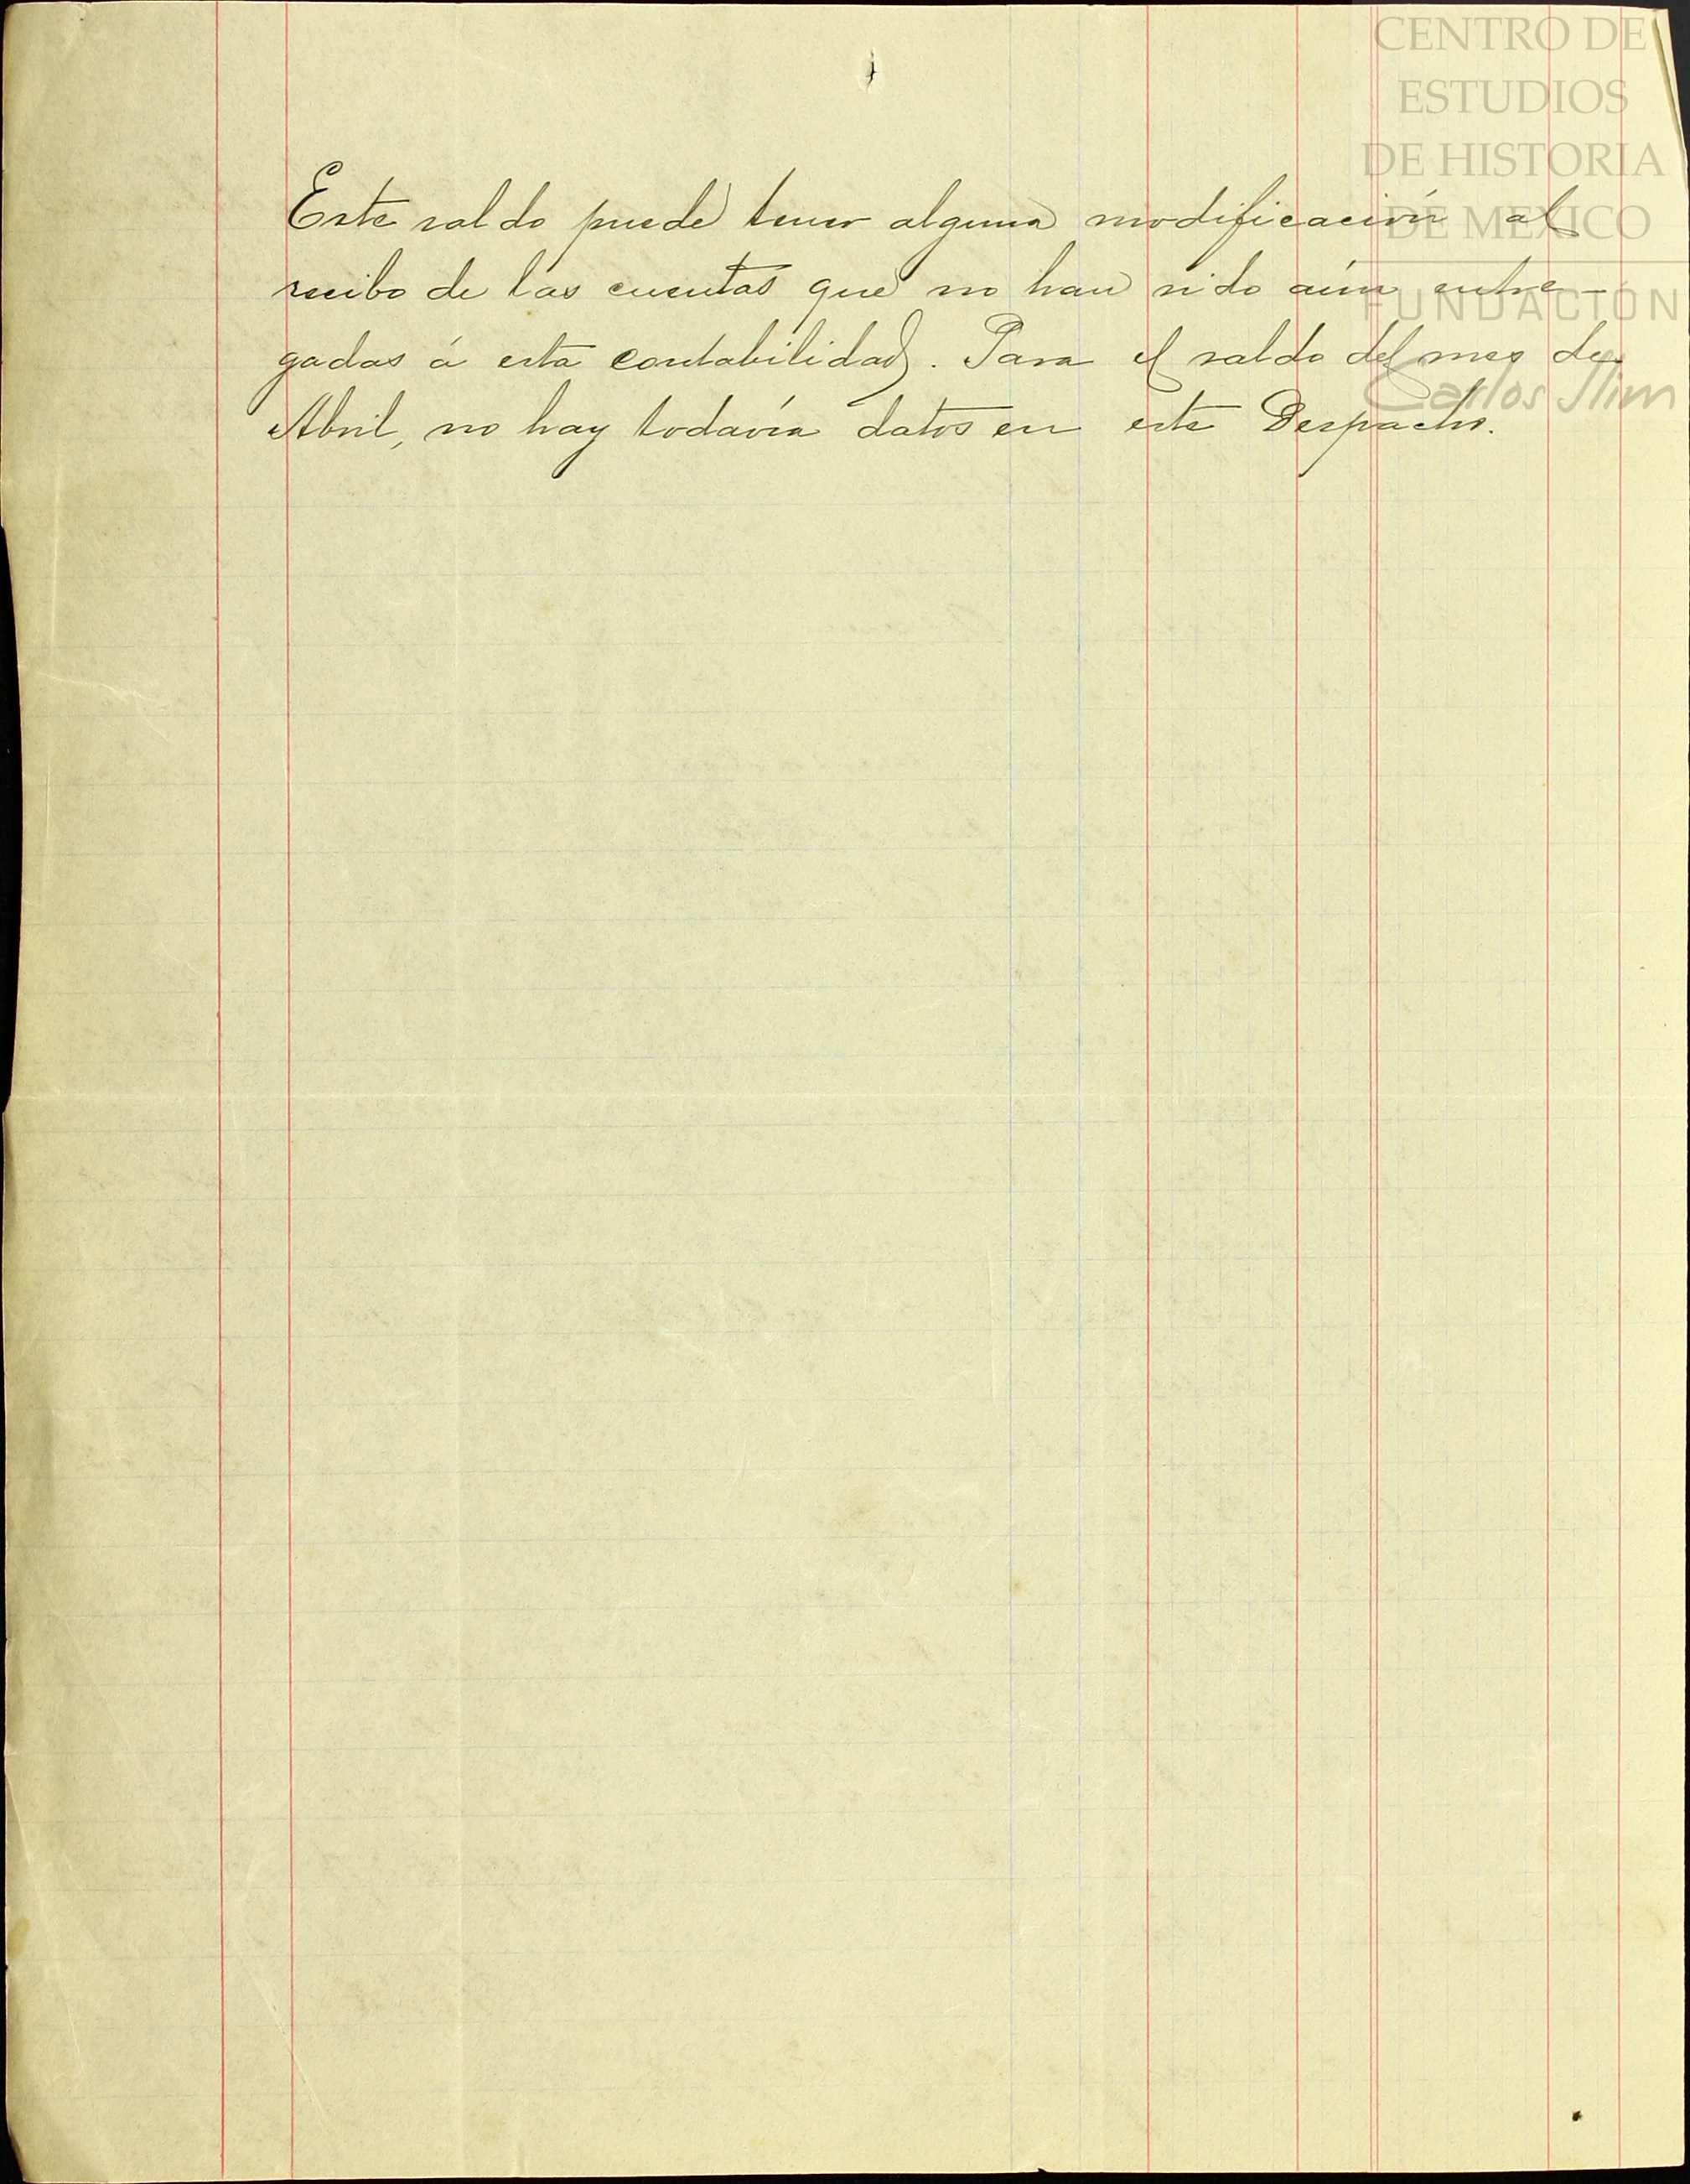 CENTRO DE
ESTUDIOS
DE HISTORIA
DE MEXICO
FUNDACIÓN
Carlos Slim
Este saldo puede tener alguna modificación al
recibo de las cuentas que no han sido aún entre-
gadas á esta contabilidad. Para el saldo del mes de
Abril, no hay todavía datos en este Despacho.